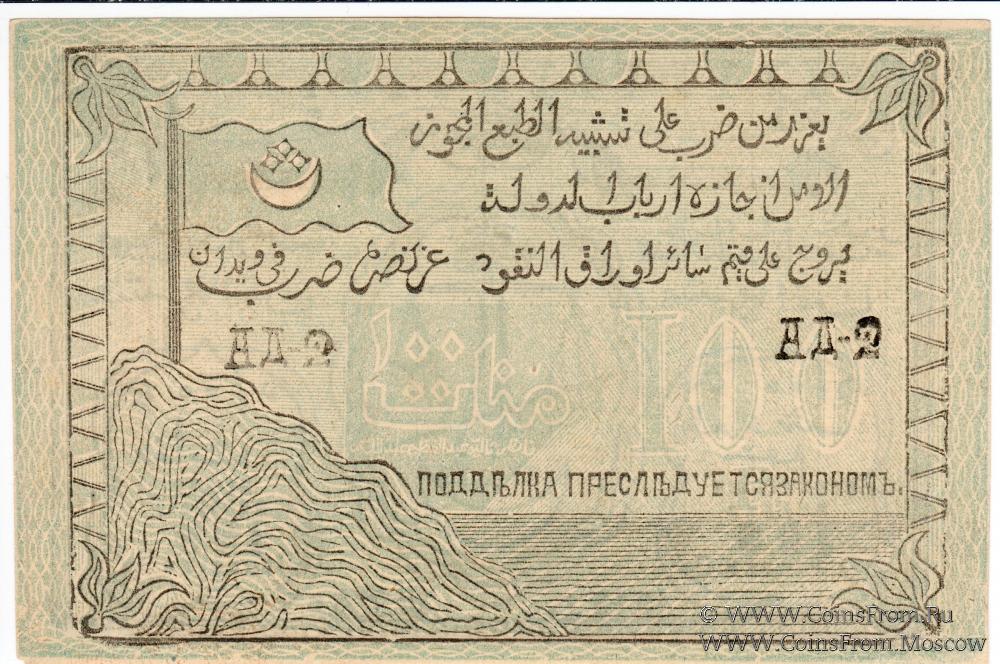 يعزر من ضرب على تشبيه الطبع المجوز
الا من اجازه ارباب الدولة
يروج على قيم سائر اوراق النقود
ضرب في ويدان
АД-2 АД-2
منات ١٠٠ 100
ПОДДѢЛКА ПРЕСЛѢДУЕТСЯ ЗАКОНОМЪ.
© WWW.CoinsFrom.Ru
WWW.CoinsFrom.Moscow